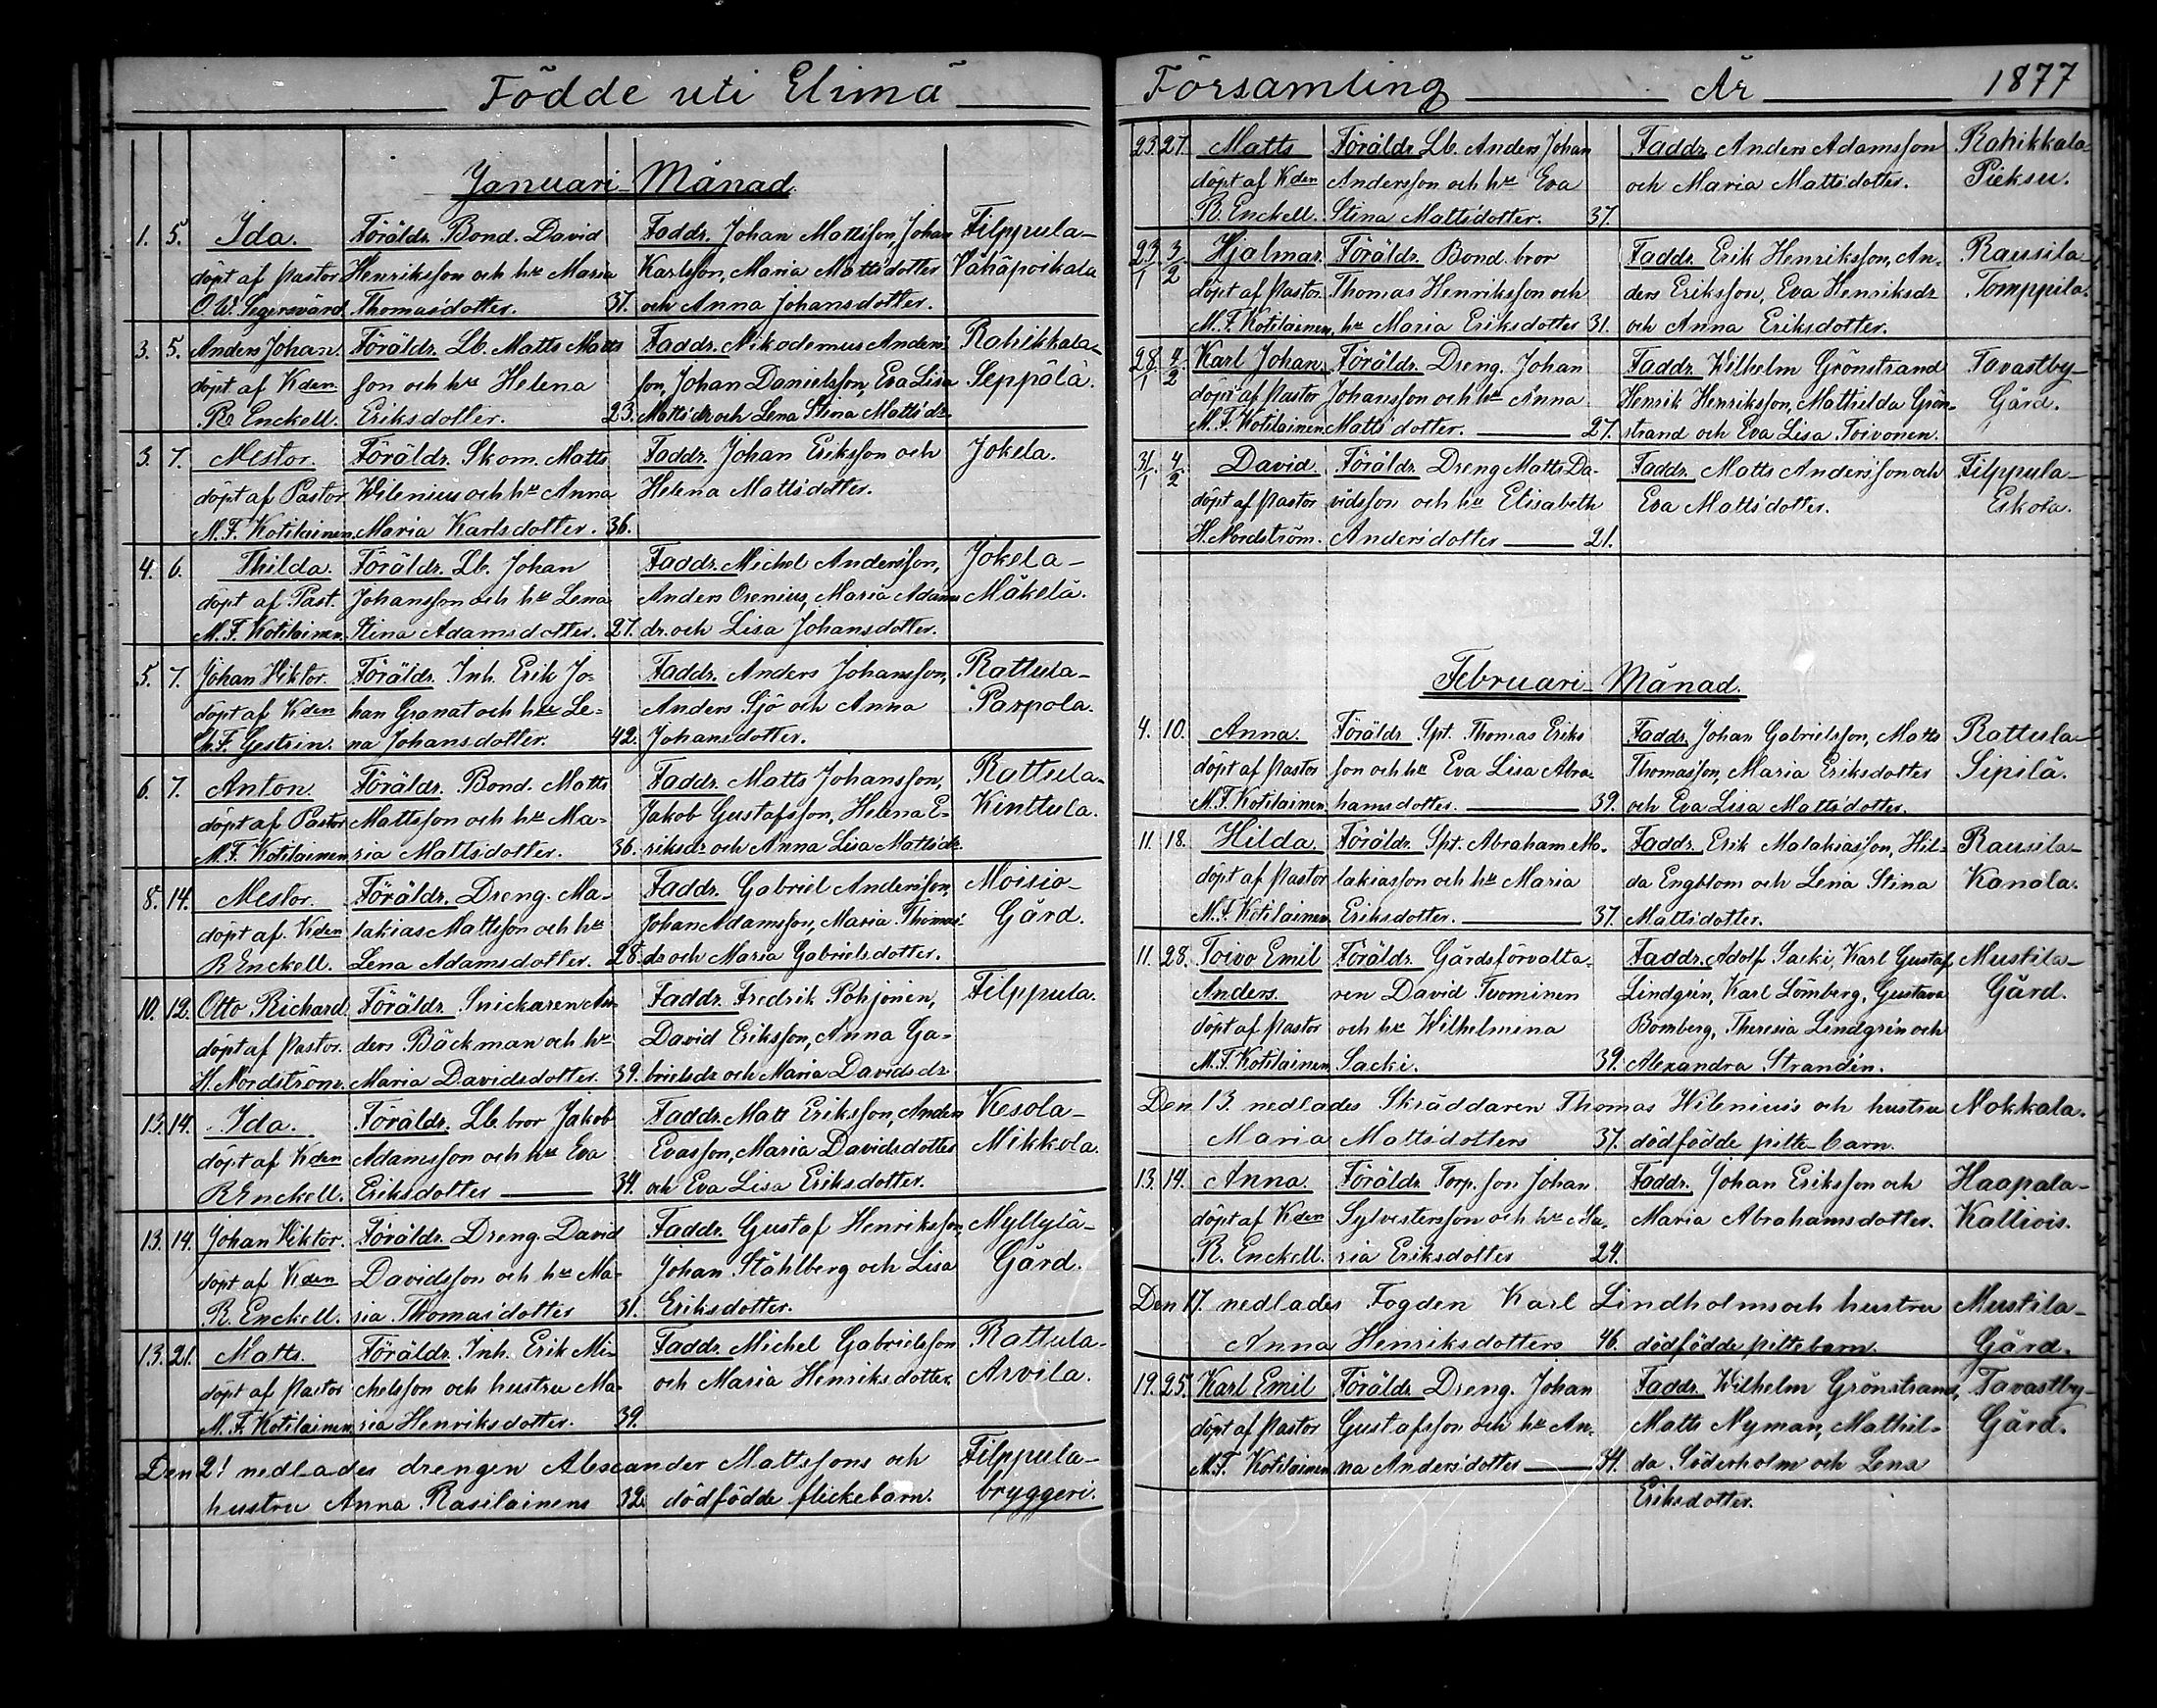 Födde uti Elimä
Januari Månad.
1. 5. Ida. Föräldr. Bond. David Faddr. Johan Mattsson, Johan Filppula-
döpt af Pastor Henriksson och hu Maria Karlsson, Maria Mattsdotter Vähäpoikala
O.W. Segersvärd. Thomasdotter. 37. och Anna Johansdotter.
3. 5. Anders Johan. Föräldr. Lb. Matts Matts Faddr. Nikodemus Anders Rahikkala-
döpt af Kden. son och hu Helena son, Johan Danielsson, Eva Lisa Seppälä.
R. Enckell. Eriksdotter. 23. Mattsdr och Lena Stina Mattsdr
3. 7. Nestor. Föräldr. Skom. Matts Faddr. Johan Eriksson och Jokela.
döpt af Pastor Wilenius och hu Anna Helena Mattsdotter.
M. F. Kotilainen. Maria Karlsdotter. 36.
4. 6. Thilda. Föräldr. Lb. Johan Faddr. Michel Andersson, Jokela-
döpt af Past. Johansson och hu Lena Anders Orenius, Maria Adams Mäkelä.
M. F. Kotilainen. Stina Adamsdotter. 27. dr. och Lisa Johansdotter.
5. 7. Johan Viktor. Föräldr. Inh. Erik Jo- Faddr. Anders Johansson, Rattula-
döpt af Kden han Granat och hu Le= Anders Sjö och Anna Parpola.
F. Gestrin. na Johansdotter. 42. Johansdotter.
6. 7. Anton. Föräldr. Bond. Matts Faddr. Matts Johansson, Rattula-
döpt af Pastor Mattsson och hu Ma- Jakob Gustafsson, Helena E- Kinttula.
M. F. Kotilainen. ria Mattsdotter. 36. riksdr och Anna Lisa Mattsdr.
8. 14. Nestor. Föräldr. Dreng. Ma- Faddr. Gabriel Andersson, Moisio-
döpt af Kden lakias Mattsson och hu Johan Adamsson, Maria Thomas- Gård.
R Enckell. Lena Adamsdotter. 28. dr och Maria Gabrielsdotter.
10. 12. Otto Richard. Föräldr. Snickaren An- Faddr. Fredrik Pohjonen, Filppula.
döpt af Pastor. ders Bäckman och hu David Eriksson, Anna Ga-
H. Nordström. Maria Davidsdotter. 39. brielsdr och Maria Davidsdr
13. 14. Ida. Föräldr. Lb. bror Jakob Faddr. Matts Eriksson, Anders Kesola-
döpt af Kden Adamsson och hu Eva Evasson, Maria Davidsdotter Mikkola.
R Enckell. Eriksdotter 34. och Eva Lisa Eriksdotter.
13. 14. Johan Viktor. Föräldr. Dreng. David Faddr. Gustaf Henriksson, Myllylä-
döpt af Kden Davidsson och hu Ma- Johan Ståhlberg och Lisa Gård.
R. Enckell. ria Thomasdotter 31. Eriksdotter.
13. 21. Matts. Föräldr. Inh. Erik Mi- Faddr. Michel Gabrielsson Rattula-
döpt af Pastor chelsson och hustru Ma- och Maria Henriksdotter. Arvila.
M. F. Kotilainen. ria Henriksdotter. 39.
Den 21 nedlades drengen Alexander Mattssons och Filppula-
hustru Anna Rasilainens 32. dödfödde flickebarn. bryggeri.
Församling År 1877
23. 27. Matts Föräldr. Lb. Anders Johan Faddr. Anders Adamsson Rahikkala-
döpt af Kden Andersson och hu Eva och Maria Mattsdotter. Pieksu.
R. Enckell. Stina Mattsdotter. 37.
23/1 3/2 Hjalmar. Föräldr. Bond. bror Faddr. Erik Henriksson, An- Rausila-
döpt af Pastor. Thomas Henriksson och ders Eriksson, Eva Henriksdr Tomppila.
M. F. Kotilainen, hu Maria Eriksdotter 31. och Anna Eriksdotter.
28/1 4/2 Karl Johan. Föräldr. Dreng. Johan Faddr. Wilhelm Grönstrand Tavastby-
döpt af Pastor Johansson och hu Anna Henrik Henriksson, Mathilda Grön- Gård.
M. F. Kotilainen Mattsdotter. 27. strand och Eva Lisa Toivonen.
31/1 4/2 David. Föräldr. Dreng Matts Da- Faddr. Matts Andersson och Filppula-
döpt af Pastor vidsson och hu Elisabeth Eva Mattsdotter. Eskola.
H. Nordström. Andersdotter 21.
Februari Månad.
4. 10. Anna. Föräldr. Spt. Thomas Eriks Faddr. Johan Gabrielsson, Matts Rattula-
döpt af Pastor son och hu Eva Lisa Abra- Thomasson, Maria Eriksdotter Sipilä.
M. F. Kotilainen. hamsdotter. 39. och Eva Lisa Mattsdotter.
11. 18. Hilda. Föräldr. Spt. Abraham Ma- Faddr. Erik Malakiasson, Hil- Rausila-
döpt af Pastor lakiasson och hu Maria da Engblom och Lena Stina Kanala.
M. F. Kotilainen Eriksdotter. 37. Mattsdotter.
11. 28. Toivo Emil Föräldr. Gårdsförvalta- Faddr. Adolf Sacki, Karl Gustaf Mustila-
Anders. ren David Tuominen Lindgrén, Karl Lömberg, Gustava Gård.
döpt af Pastor och hu Wilhelmina Bomberg, Theresia Lindgrén och
M. F. Kotilainen Sacki. 39. Alexandra Strandén.
Den 13. nedlades Skräddaren Thomas Wilenius's och hustru Nokkala.
Maria Mattsdotters 37. dödfödde pilte-barn.
13. 14. Anna. Föräldr. Torp. son Johan Faddr. Johan Eriksson och Haapala-
döpt af Kden Sylvestersson och hu Ma- Maria Abrahamsdotter. Kalliois.
R. Enckell. ria Eriksdotter 24.
Den 17. nedlades Fogden Karl Lindholms och hustru Mustila-
Anna Henriksdotters 46. dödfödde piltebarn. Gård.
19. 25. Karl Emil Föräldr. Dreng. Johan Faddr. Wilhelm Grönstrand, Tavastby-
döpt af Pastor Gustafsson och hu An- Matts Nyman, Mathil- Gård.
M. F. Kotilainen na Andersdotter 34. da Söderholm och Lena
Eriksdotter.